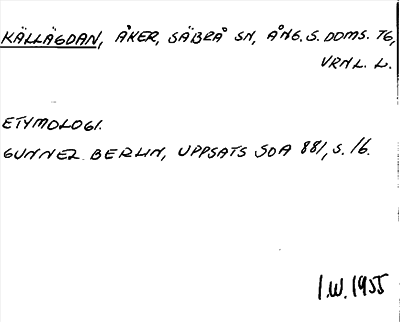 KÄLLÄGDAN, ÅKER, SÄBRÅ SN, ÅNG. S. DOMS. TG,
VRNL. L.
ETYMOLOGI.
GUNNEL BERLIN, UPPSATS SOA 881, S. 16.
I.W. 1955